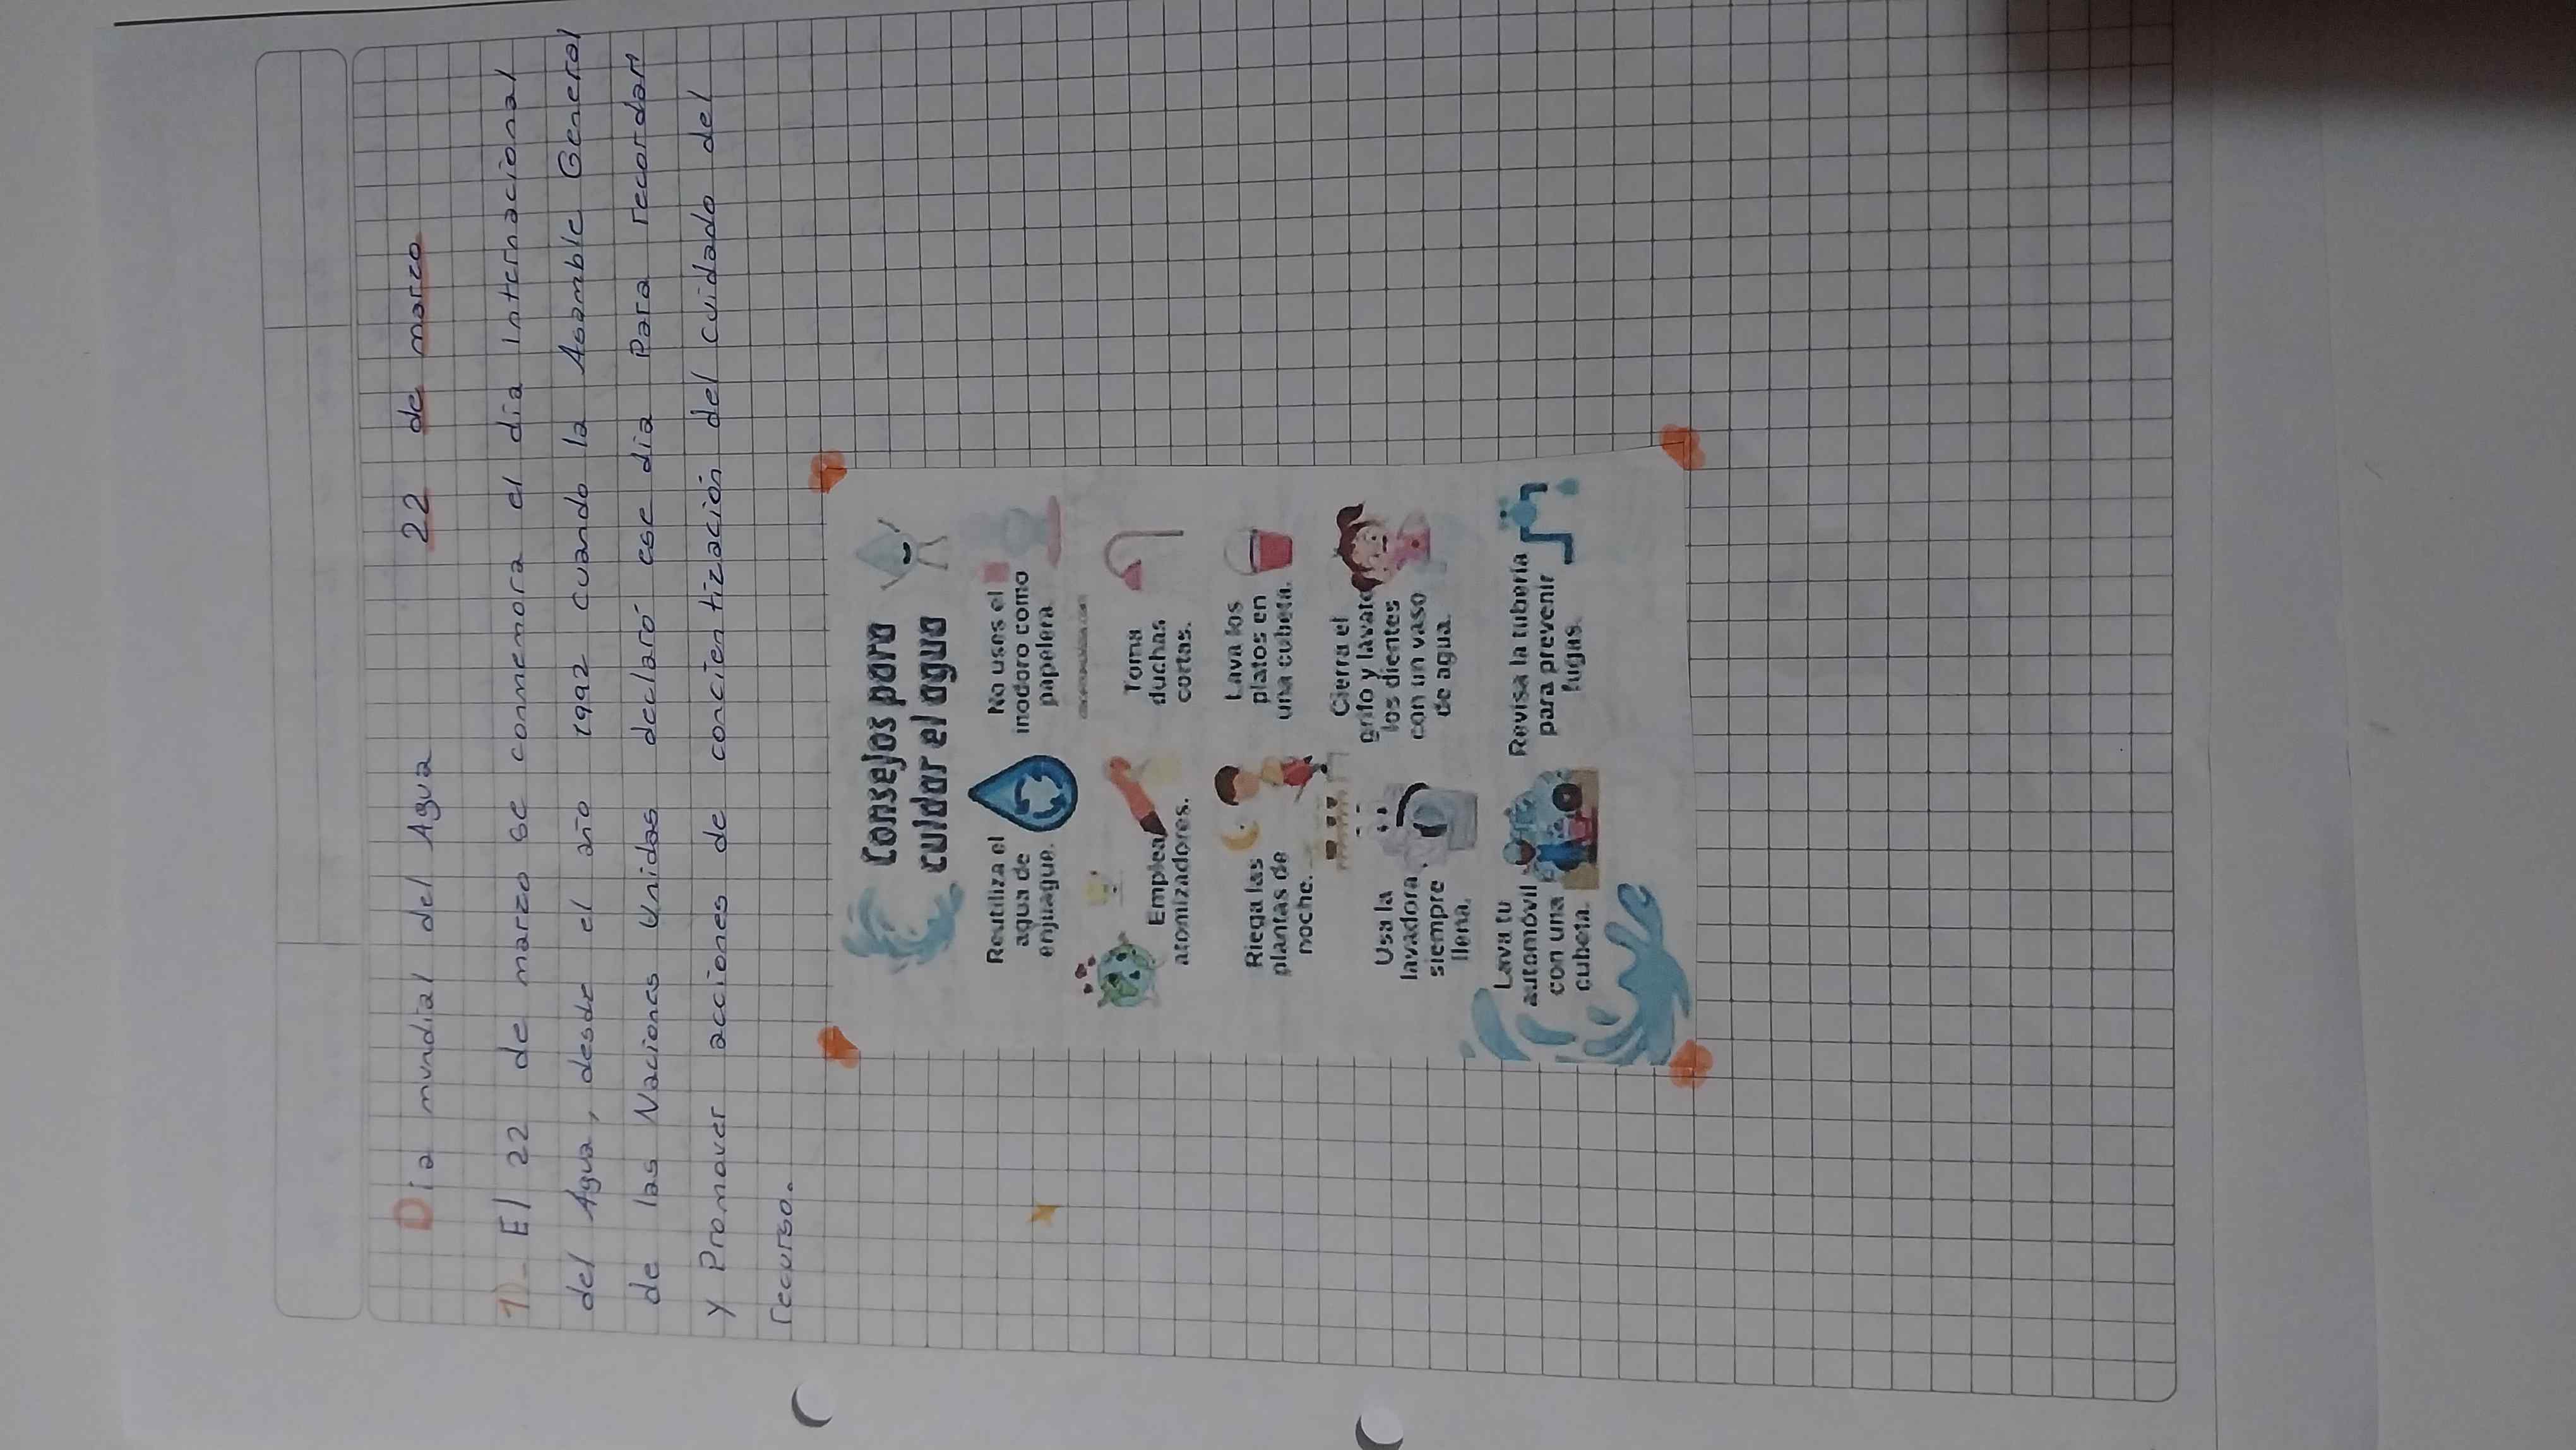 Dia mundial del Agua 22 de marzo
1)_ El 22 de marzo se conmemora el dia internacional
del Agua, desde el año 1992 cuando la Asamble General
de las Naciones Unidas declaró ese dia Para recordar
y Promover acciones de concientización del cuidado del
recurso.
Consejos para
cuidar el agua
Reutiliza el
agua de
enjuague.
No uses el
inodoro como
papelera.
Emplea
atomizadores.
Toma
duchas
cortas.
Riega las
plantas de
noche.
Lava los
platos en
una cubeta.
Usa la
lavadora
siempre
llena.
Cierra el
grifo y lavate
los dientes
con un vaso
de agua.
Lava tu
automóvil
con una
cubeta.
Revisa la tubería
para prevenir
fugas.